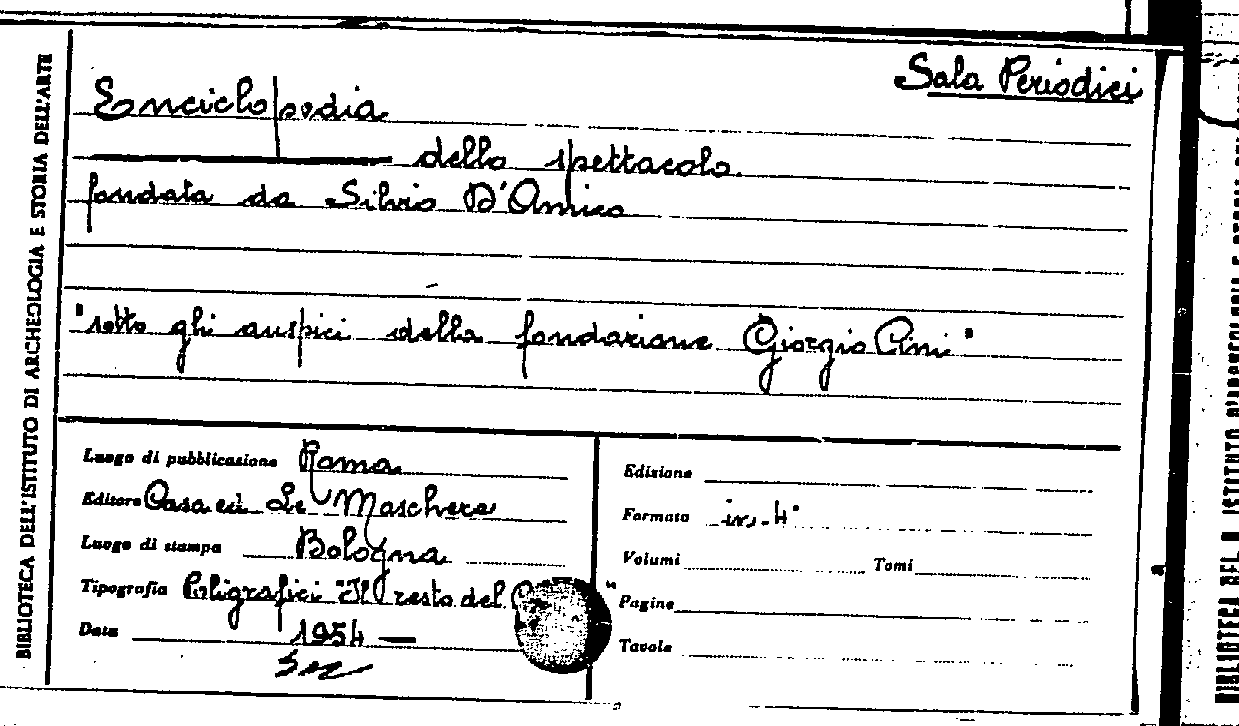 Sala Periodici
Enciclopedia
dello spettacolo.
fondata da Silvio D'Amico
"sotto gli auspici della fondazione Giorgio Cini"
Luogo di pubblicazione Roma
Editore Casa ed. Le Maschere
Luogo di stampa Bologna
Tipografia Poligrafici "Il resto del
Data 1954 —
Edizione
Formato in-4°
Volumi Tomi
Pagine
Tavole
BIBLIOTECA DELL'ISTITUTO DI ARCHEOLOGIA E STORIA DELL'ARTE